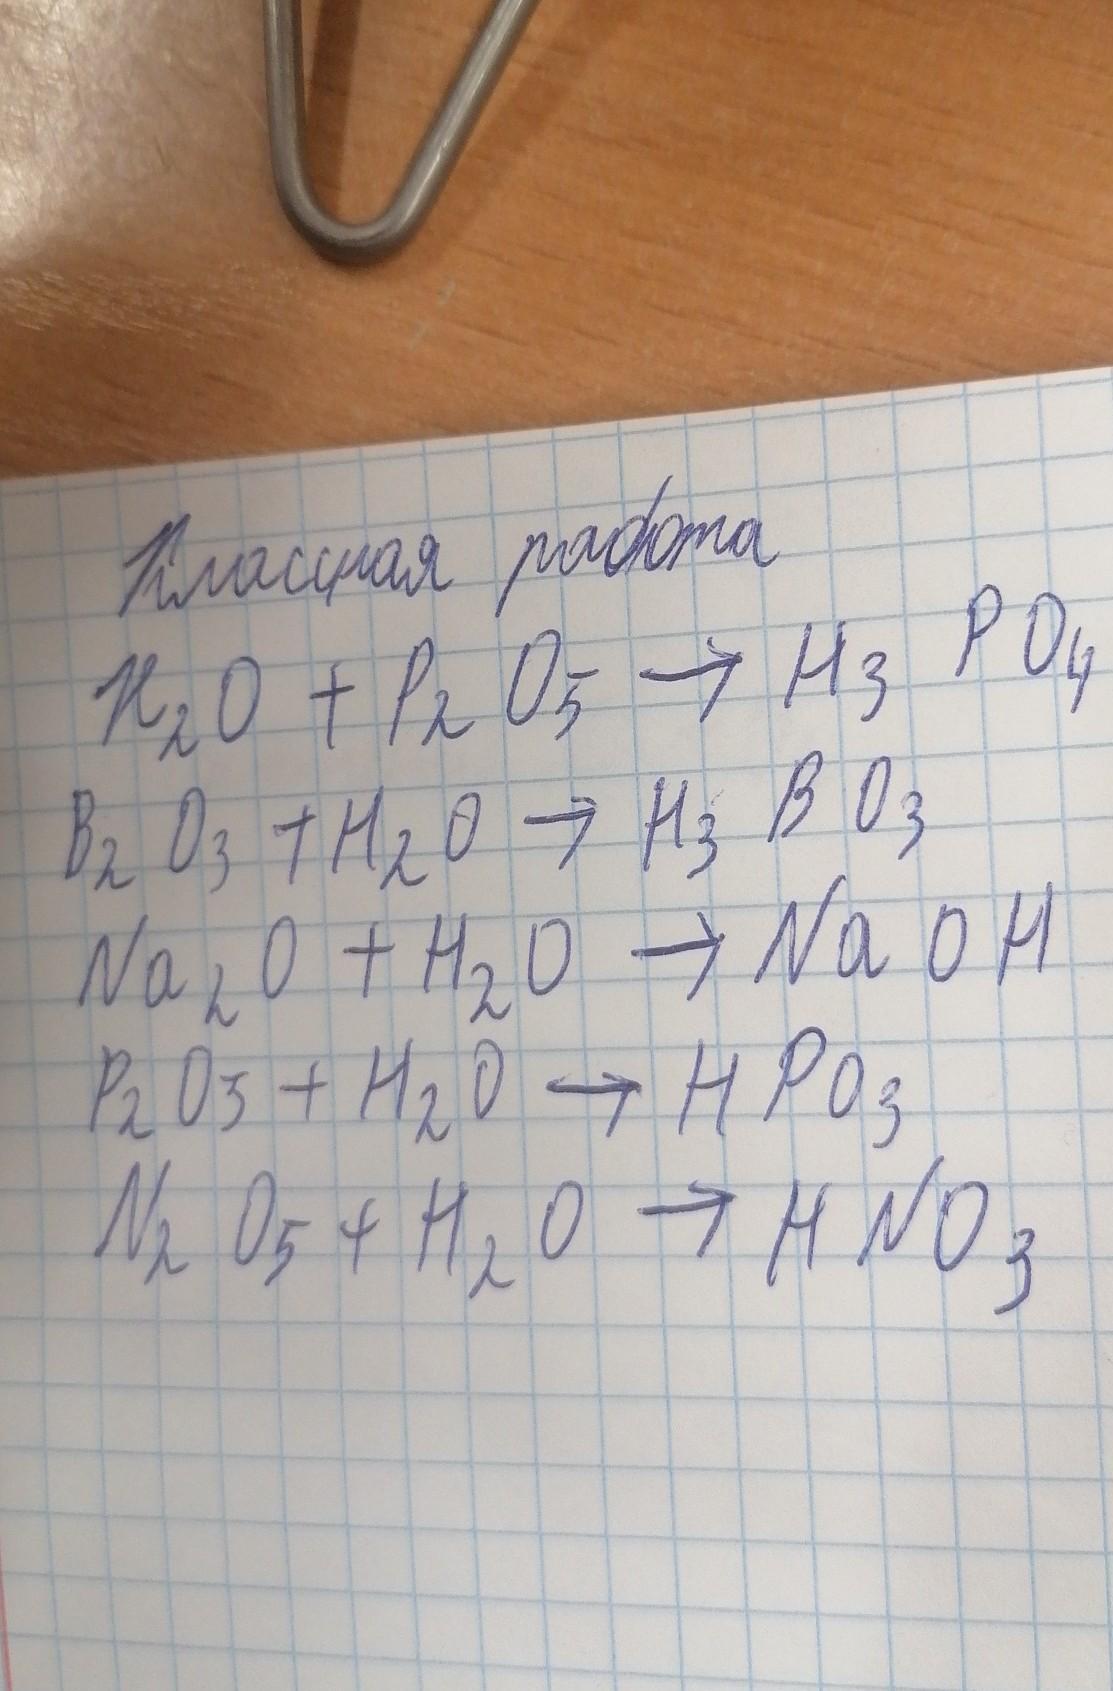 Классная работа
H₂O + P₂O₅ → H₃PO₄
B₂O₃ + H₂O → H₃BO₃
Na₂O + H₂O → NaOH
P₂O5 + H₂O → HPO₃
N₂O₅ + H₂O → HNO₃